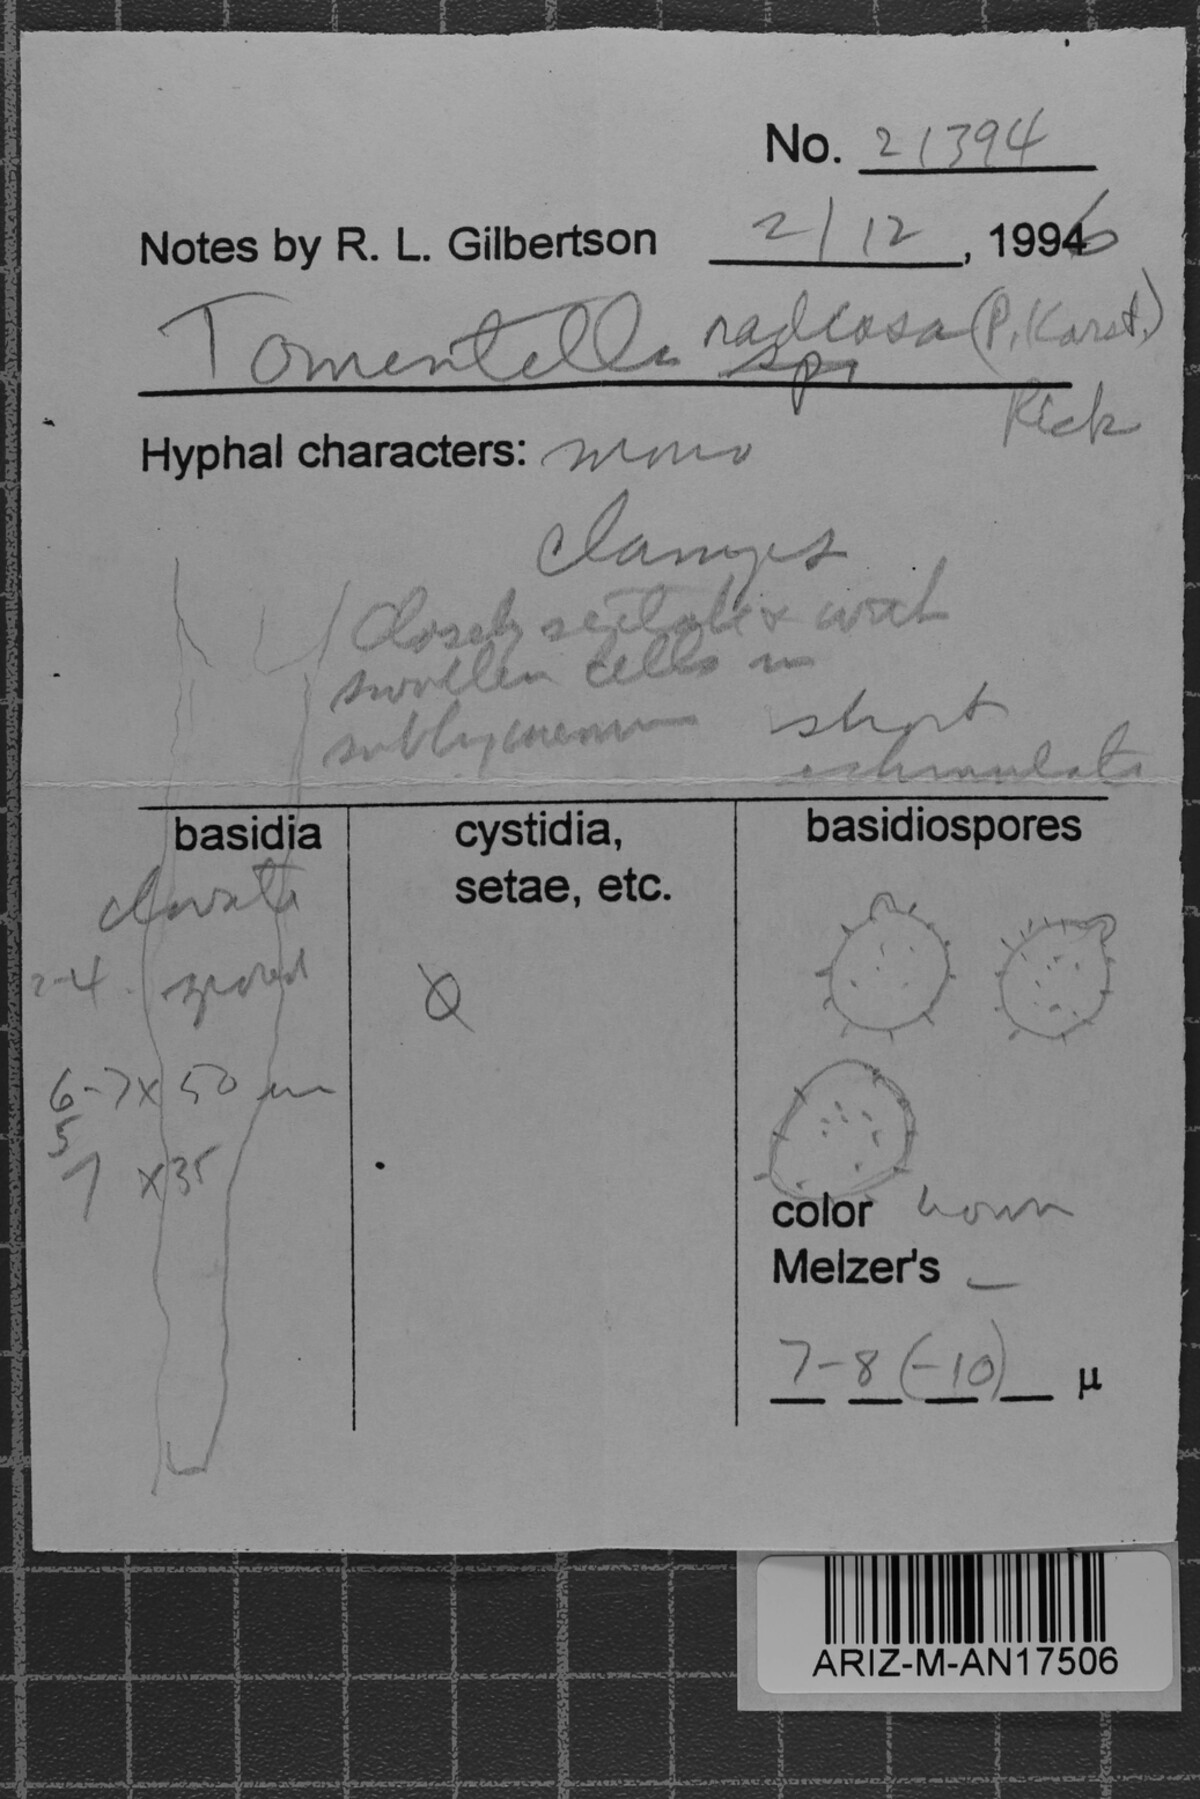 No. 21394
Notes by R. L. Gilbertson 2/12, 1996
Tomentella sp. radiosa (P. Karst.)
Rick
Hyphal characters: mono
clamps
Closely septate & with
swollen cells in
subhymenium short
echinulate
basidia cystidia, basidiospores
setae, etc.
clavate
2-4 spored
6-7 x 50 um
5
7 x 35
color brown
Melzer's –
7-8(-10) µ
ARIZ-M-AN17506